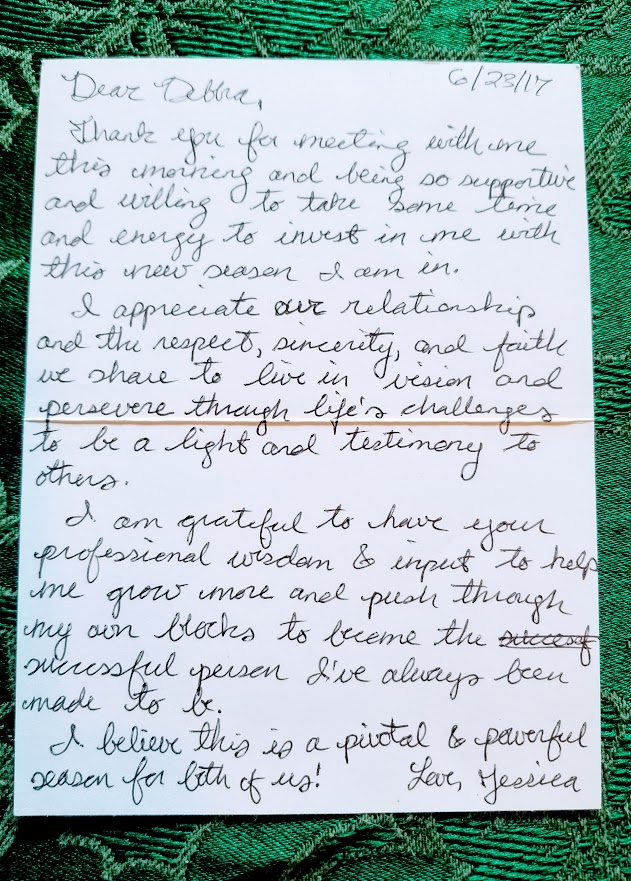 6/23/17
Dear Debbra,
Thank you for meeting with me
this morning and being so supportive
and willing to take some time
and energy to invest in me with
this new season I am in.
I appreciate our relationship
and the respect, sincerity, and faith
we share to live in vision and
persevere through life's challenges
to be a light and testimony to
others.
I am grateful to have your
professional wisdom & input to help
me grow more and push through
my own blocks to become the succesf
successful person I've always been
made to be.
I believe this is a pivotal & powerful
season for both of us! Love, Jessica